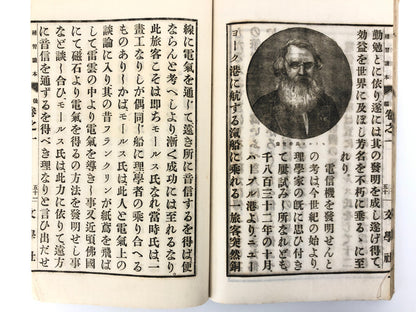 勤勉とに依り遂には其の發明を成し遂げ得て、
効益を世界に及ぼし芳名を不朽に垂るゝに至
れり。
電信機を發明せんと
の考は今世紀の始より、
理學家の既に思ひ付き
て屢試みし所なれども、
千八百三十二年の十月、
ハーブル港よりニュー
ヨーク港に航する汽船に乘れる一旅客突然銅
線に電氣を通じて遠き所に音信するを得ば便
ならんと考へしより漸く成功には至れるなり。
此旅客こそは即ちモールス氏なれ當時氏は、一
畫工なりしが偶同じ船に理學者の乘り合へる
ものありしかば、モールス氏は此人と電氣上の
談論に入り其の昔フランクリンが紙鳶を飛ば
して雷雲の中より電氣を導きし事又近頃佛國
にて磁石より電氣を得るの方法を發明せし事
など談し合ひ、モールス氏は此力に依りて遠方
に音信を通ずるを得べき理なりと言ひ出だせ
卷之一 五十二 文學社